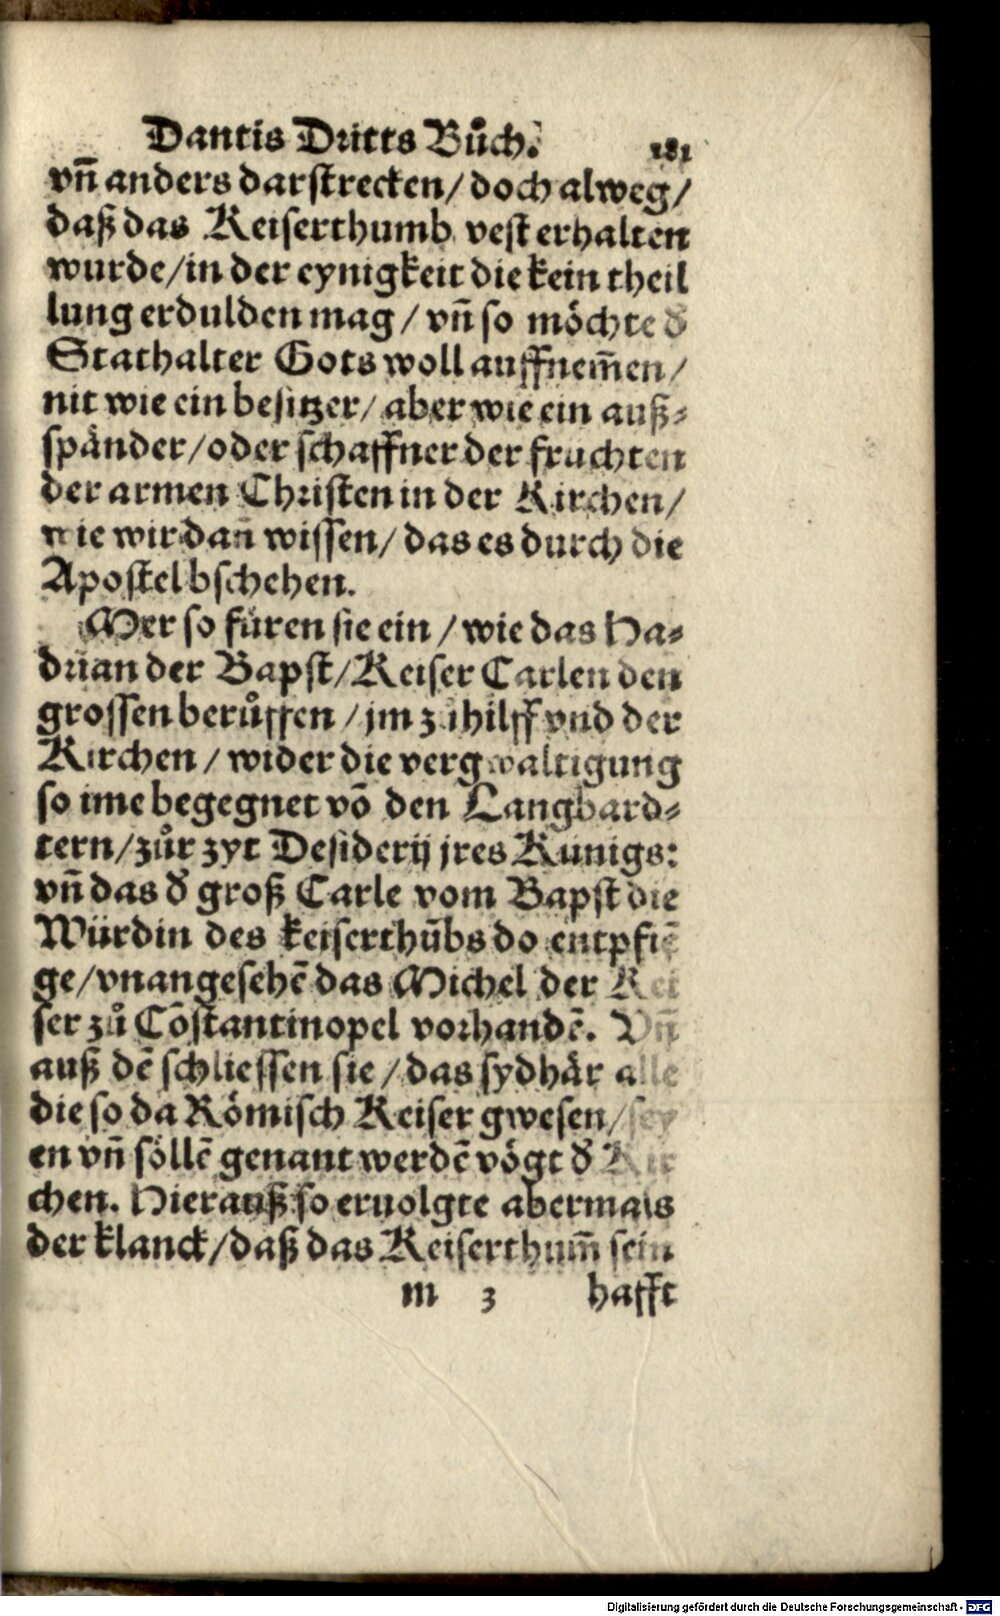 Dantis Dritts Bůch. 181
vn̄ anders darstrecken/ doch alweg/
daß das Keiserthumb vest erhalten
wurde/in der eynigkeit die kein theil
lung erdulden mag/ vn̄ so möchte d̕
Stathalter Gots woll auffnem̄en/
nit wie ein besitzer/ aber wie ein auß⸗
spänder/oder schaffner der fruchten
der armen Christen in der Kirchen/
wie wir dan̄ wissen/ das es durch die
Apostel bschehen.
Mer so füren sie ein/ wie das Ha⸗
drian der Bapst/Keiser Carlen den
grossen berůffen/ jm zů hilff vnd der
Kirchen/ wider die vergwaltigung
so ime begegnet vō den Langbard⸗
tern/zůr zyt Desiderij jres Künigs:
vn̄ das d̕ groß Carle vom Bapst die
Würdin des keiserthūbs do entpfiē
ge/vnangesehē das Michel der Kei
ser zů Cōstantinopel vorhandē. Vn̄
auß dē schliessen sie/ das sydhär alle
die so da Römisch Keiser gwesen/ sey
en vn̄ söllē genant werdē vögt d̕ Kir
chen. Hierauß so eruolgte abermals
der klanck/daß das Keiserthum̄ sein
m 3 hafft
Digitalisierung gefördert durch die Deutsche Forschungsgemeinschaft - DFG